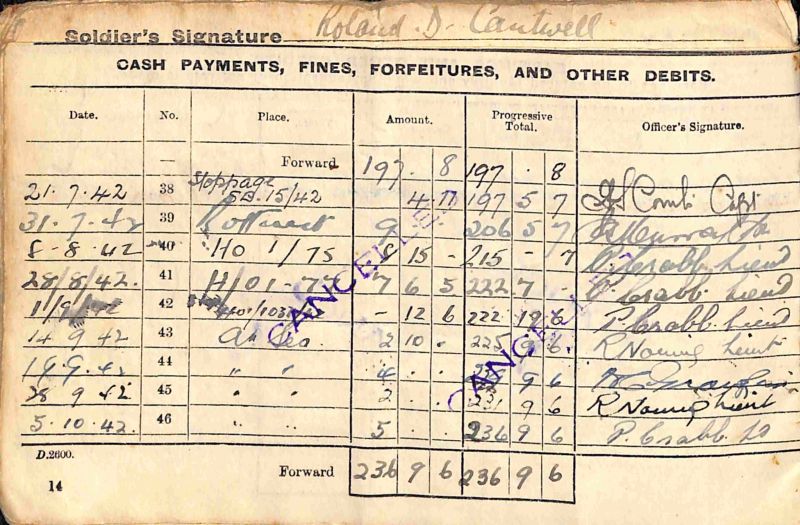 Soldier's Signature Roland D. Cantwell
CASH PAYMENTS, FINES, FORFEITURES, AND OTHER DEBITS.
Date. No. Place. Amount. Progressive Total. Officer's Signature.
— Forward 197 . 8 197 . 8
21.7.42 38 Stoppage 15/42 4 11 197 5 7 Capt
31.7.42 39 9 206 5 7
8-8-42 40 HO 1/75 8 15 - 215 - 7 P. Crabb Lieut
28/8/42. 41 H/01-77 7 6 5 222 7 - P. Crabb. Lieut
1/9/42 42 - 12 6 222 19 6 P. Crabb. Lieut
14 9 42 43 2 10 . 225 9 6 R Lieut
19.9.42 44 " " 4 . . 9 6
28 9 42 45 " " 2 . . 231 9 6 R Lieut
5.10.42. 46 " " 5 . . 236 9 6 P. Crabb. Lt
D.2600. Forward 236 9 6 236 9 6
14
CANCELLED
CANCELLED